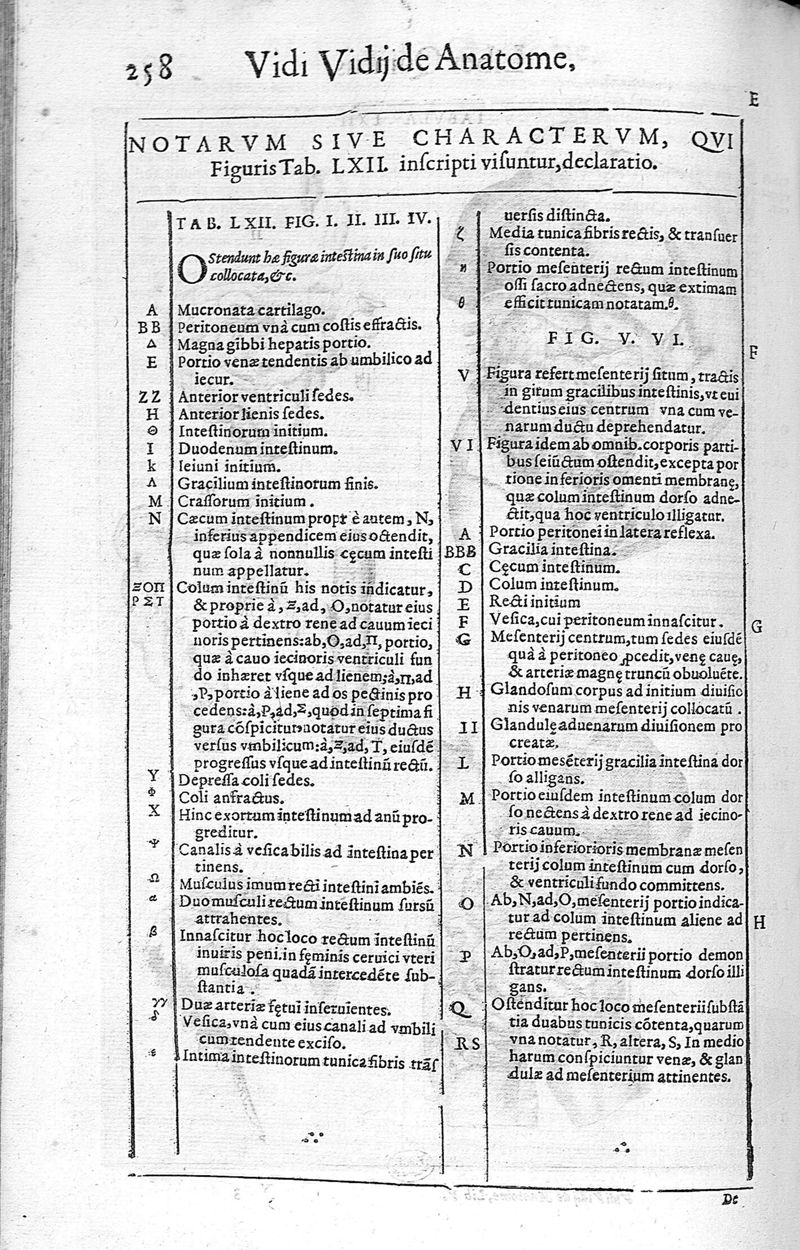 258 Vidi Vidij de Anatome,
E
NOTARVM SIVE CHARACTERVM, QVI
Figuris Tab. LXII. inſcripti viſuntur, declaratio.
TAB. LXII. FIG. I. II. III. IV.
OStendunt hæ figuræ inteſtina in ſuo ſitu
collocata, &c.
A Mucronata cartilago.
BB Peritoneum vnà cum coſtis effractis.
Δ Magna gibbi hepatis portio.
E Portio venæ tendentis ab umbilico ad
iecur.
ZZ Anterior ventriculi ſedes.
H Anterior lienis ſedes.
Θ Inteſtinorum initium.
I Duodenum inteſtinum.
k Ieiuni initium.
Λ Gracilium inteſtinorum finis.
M Craſſorum initium.
N Cæcum inteſtinum propr è autem, N,
inferius appendicem eius oſtendit,
quæ ſola à nonnullis cęcum inteſti
num appellatur.
ΞΟΠ Colum inteſtinũ his notis indicatur,
ΡΣΤ & proprie à, Ξ, ad, O, notatur eius
portio à dextro rene ad cauum ieci
noris pertinens: ab, O, ad, Π, portio,
quæ à cauo iecinoris ventriculi fun
do inhæret vſque ad lienem; à, Π, ad
, P, portio à liene ad os pectinis pro
cedens: à, P, ad, Σ, quod in ſeptima fi
gura cõſpicitur, notatur eius ductus
verſus vmbilicum: à, Ξ, ad, T, eiuſdẽ
progreſſus vſque ad inteſtinũ rectũ.
Υ Depreſſa coli ſedes.
Φ Coli anfractus.
Χ Hinc exortum inteſtinum ad anũ pro-
greditur.
Ψ Canalis à veſica bilis ad inteſtina per
tinens.
Ω Muſculus imum recti inteſtini ambiẽs.
α Duo muſculi rectum inteſtinum ſursũ
attrahentes.
β Innaſcitur hoc loco rectum inteſtinũ
in uiris peni. in fęminis ceruici vteri
muſculoſa quadã intercedẽte ſub-
ſtantia.
γγ Duæ arteriæ fętui inſeruientes.
δ Veſica, vnà cum eius canali ad vmbili
cum tendente exciſo.
ε Intima inteſtinorum tunica fibris trãſ
uerſis diſtincta.
ζ Media tunica fibris rectis, & tranſuer
ſis contenta.
η Portio meſenterij rectum inteſtinum
oſſi ſacro adnectens, quæ extimam
θ efficit tunicam notatam. θ.
FIG. V. VI.
F
V Figura refert meſenterij ſitum, tractis
in girum gracilibus inteſtinis, vt eui
dentius eius centrum vna cum ve-
narum ductu deprehendatur.
VI Figura idem ab omnib. corporis parti-
bus ſeiũctum oſtendit, excepta por
tione inferioris omenti membranę,
quæ colum inteſtinum dorſo adne-
ctit, qua hoc ventriculo illigatur.
A Portio peritonei in latera reflexa.
BBB Gracilia inteſtina.
C Cęcum inteſtinum.
D Colum inteſtinum.
E Recti initium
F Veſica, cui peritoneum innaſcitur.
G
G Meſenterij centrum, tum ſedes eiuſdẽ
quà à peritoneo ꝓcedit, venę cauę,
& arteriæ magnę truncũ obuoluẽte.
H Glandoſum corpus ad initium diuiſio
nis venarum meſenterij collocatũ.
II Glandulę aduenarum diuiſionem pro
creatæ.
L Portio meſẽterij gracilia inteſtina dor
ſo alligans.
M Portio eiuſdem inteſtinum colum dor
ſo nectens à dextro rene ad iecino-
ris cauum.
N Portio inferiorioris membranæ meſen
terij colum inteſtinum cum dorſo,
& ventriculi fundo committens.
O Ab, N, ad, O, meſenterij portio indica-
tur ad colum inteſtinum aliene ad
rectum pertinens.
H
P Ab, O, ad, P, meſenterii portio demon
ſtratur rectum inteſtinum dorſo illi
gans.
Q Oſtenditur hoc loco meſenterii ſubſtã
tia duabus tunicis cõtenta, quarum
RS vna notatur, R, altera, S, In medio
harum conſpiciuntur venæ, & glan
dulæ ad meſenterium attinentes.
De